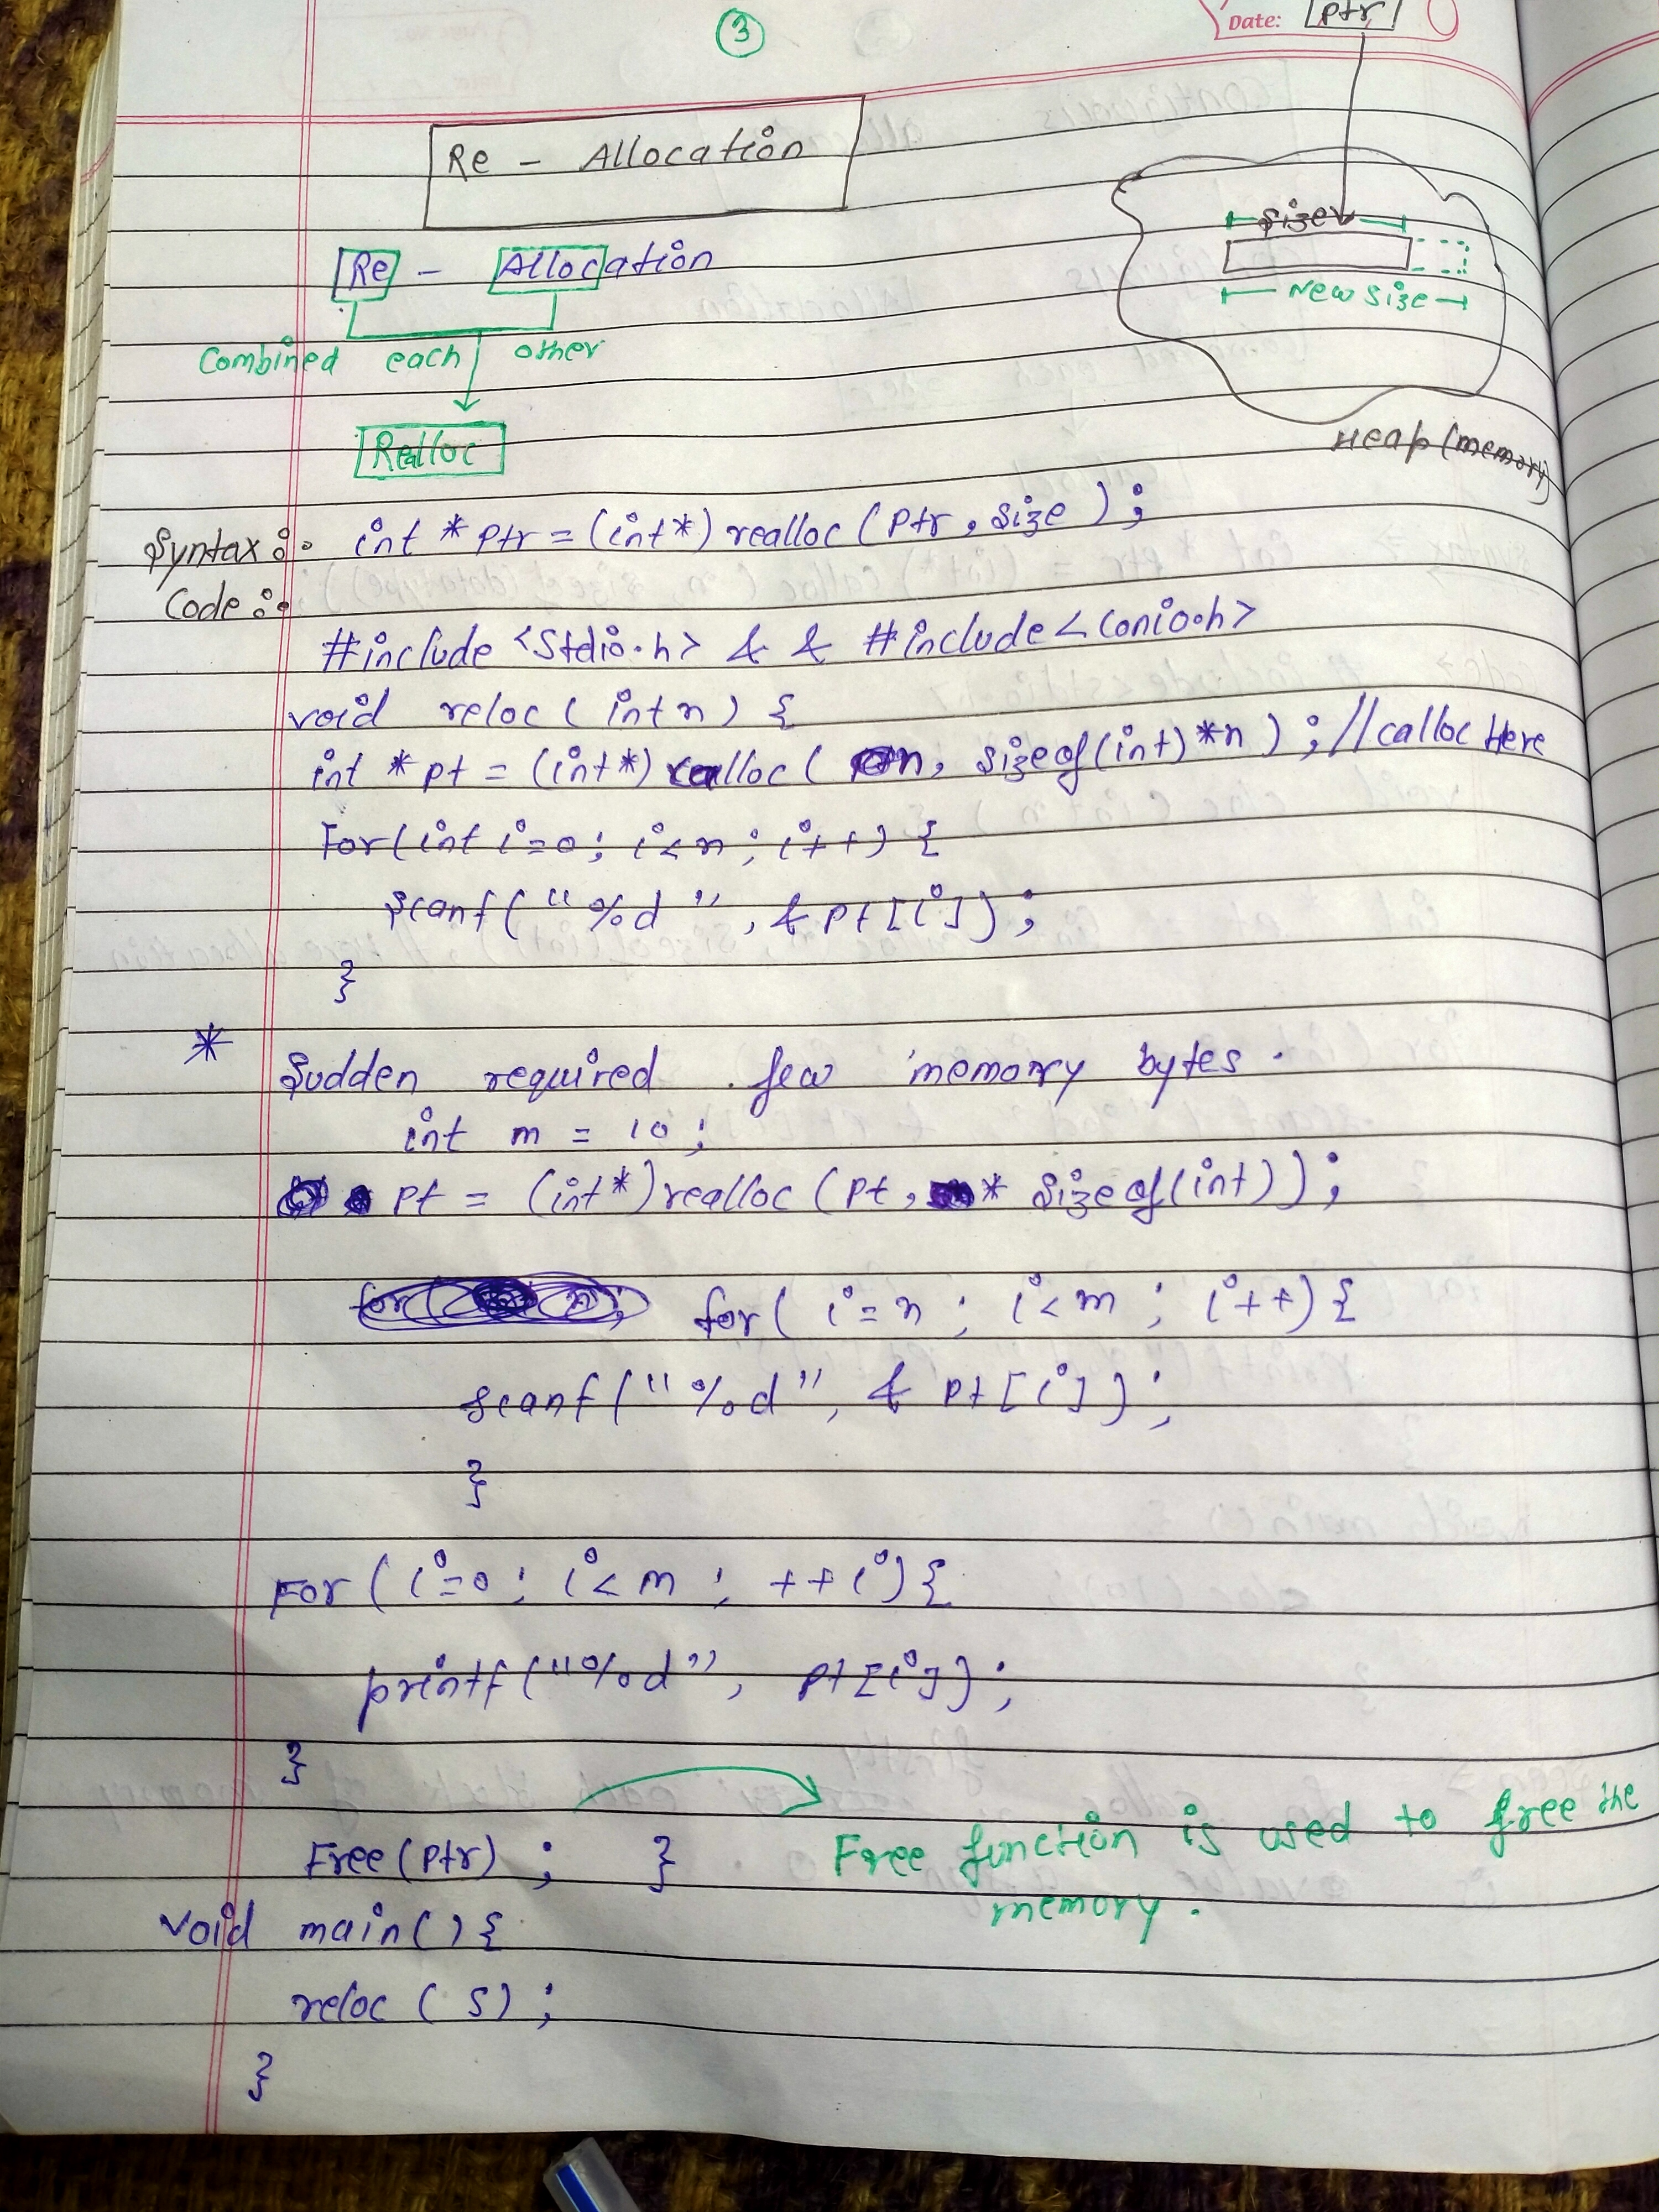 3
Date: ptr
Re - Allocation
size
Re - Allocation
New size
Combined each other
Realloc
Heap (memory)
Syntax :- int * ptr = (int*) realloc (ptr, size );
Code :-
#include <stdio.h> & & #include <conio.h>
void reloc ( int n ) {
int * pt = (int*) calloc ( n, sizeof(int) *n ) ; // calloc Here
For (int i=0; i<n ; i++) {
scanf ( "%d ", & pt [i]) ;
}
* Sudden required few memory bytes.
int m = 10 ;
pt = (int*) realloc (pt, * sizeof(int)) ;
for ( i=n ; i<m ; i++) {
scanf ("%d", & pt [i]) ;
}
For ( i=0 ; i<m ; ++i) {
printf ("%d", pt [i]) ;
}
Free (ptr) ; } Free function is used to free the
memory.
void main () {
reloc ( 5) ;
}